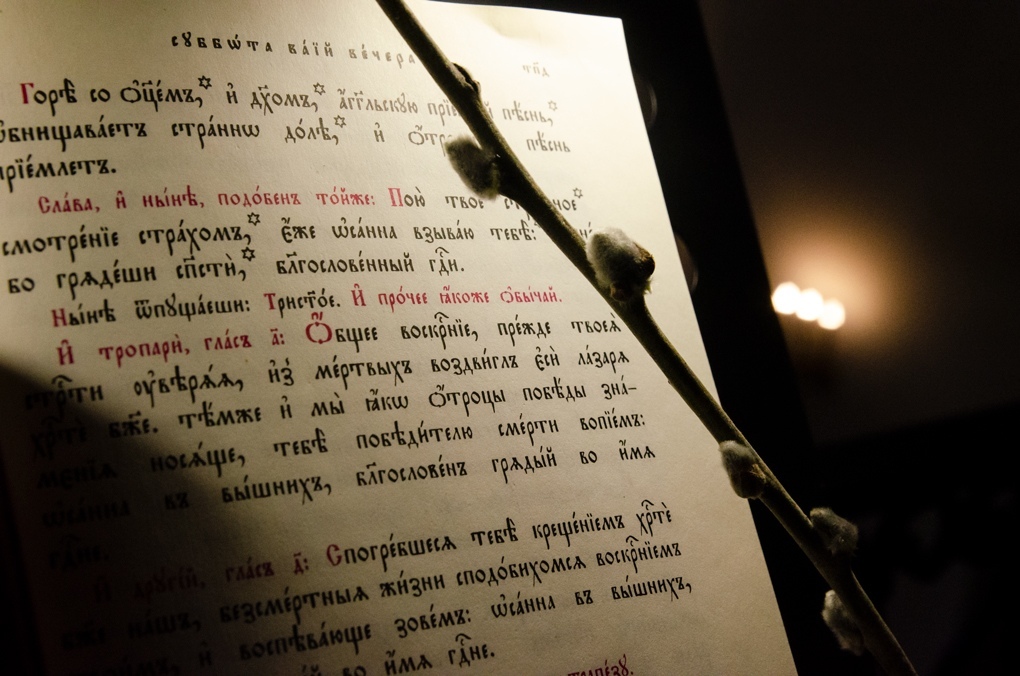 сꙋббѡ́та ва́їй ве́чера
Горѣ̀ со ѻ҆ц҃е́мъ,* и҆ дх҃омъ,* а҆́гг҃льскꙋю пѣ́снь,*
ѡ҆бнищава́етъ стра́ннѡ до́лѣ,* и҆ пѣ́снь
прїе́млетъ.
Сла́ва, и҆ ны́нѣ, подо́бенъ то́йже: Пою̀ твоѐ
смотре́нїе стра́хомъ,* є҆́же ѡ҆са́нна взыва́ю тебѣ̀:*
бо грѧде́ши сп҃стѝ,* бл҃гослове́нный гдⷭ҇и.
Ны́нѣ ѿпꙋща́еши: Трист҃о́е. И҆ про́чее ꙗ҆́коже ѻ҆бы́чай.
И҆ тропарѝ, гла́съ а҃: Ѻ҆́бщее воскрⷭ҇нїе, пре́жде твоеѧ̀
стрⷭ҇ти ᲂу҆вѣрѧ́ѧ, и҆з̾ ме́ртвыхъ воздви́глъ є҆сѝ ла́зарѧ
хрⷭ҇тѐ бж҃е. тѣ́мже и҆ мы̀ ꙗ҆́кѡ ѻ҆́троцы побѣ́ды зна́-
менїѧ носѧ́ще, тебѣ̀ побѣди́телю сме́рти вопїе́мъ:
ѡ҆са́нна въ вы́шнихъ, бл҃гослове́нъ грѧды́й во и҆́мѧ
гдⷭ҇не.
И҆ дрꙋгі́й, гла́съ д҃: Спогре́бшесѧ тебѣ̀ креще́нїемъ хрⷭ҇тѐ
бж҃е на́шъ, безсме́ртныѧ жи́зни сподо́бихомсѧ воскрⷭ҇нїемъ
и҆ воспѣва́юще зове́мъ: ѡ҆са́нна въ вы́шнихъ,
во и҆́мѧ гдⷭ҇не.